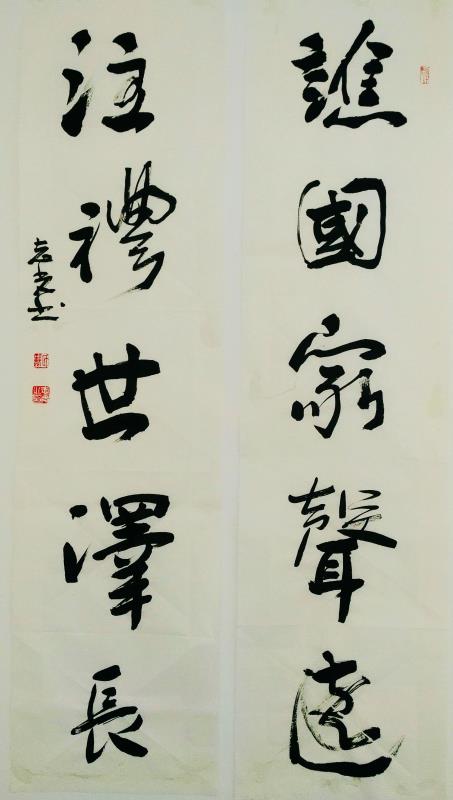 譙國家聲遠
注禮世澤長